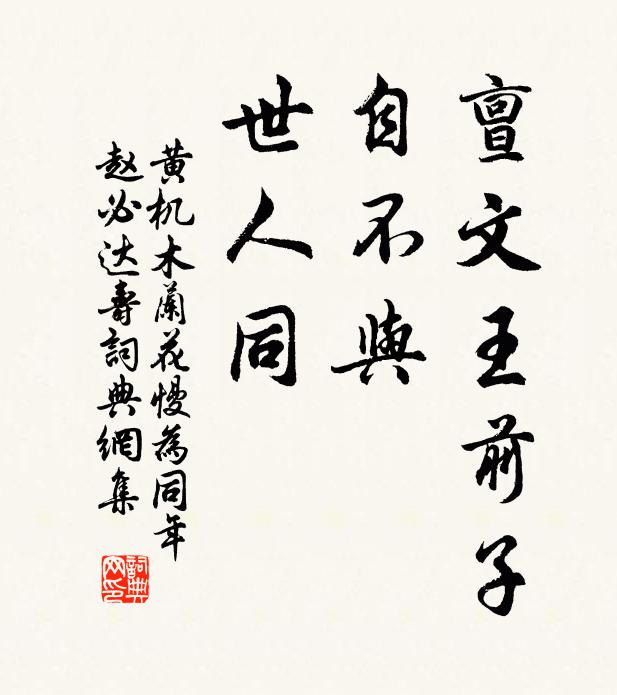 亶文王前子
自不與
世人同
黄机木蘭花慢為同年
赵必达壽詞典網集
詞典网印